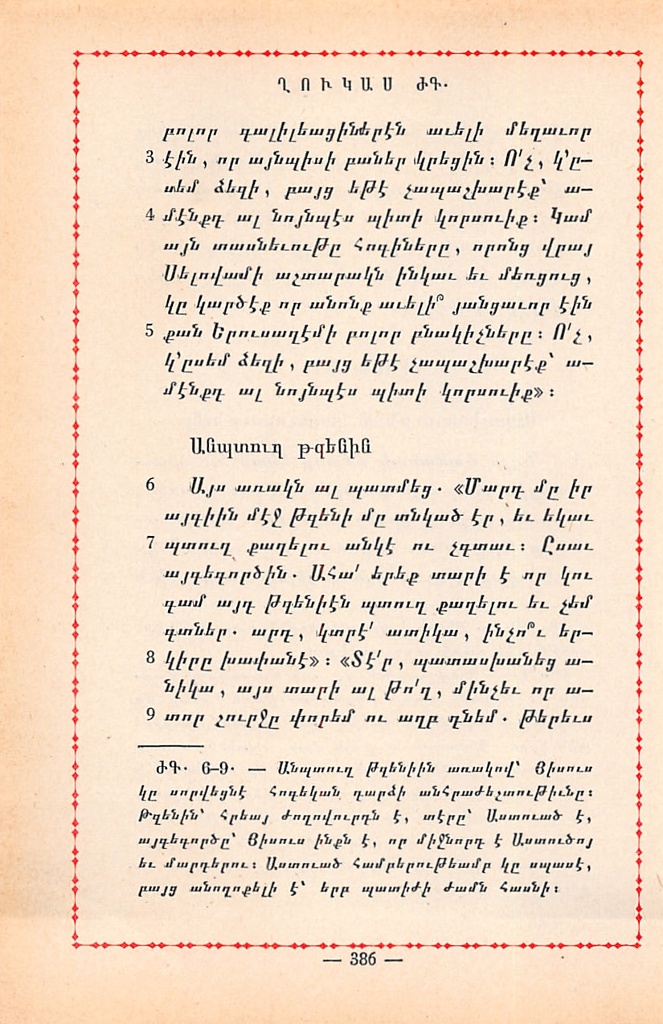 ՂՈՒԿԱՍ ԺԳ.
բոլոր գալիլեացիներէն աւելի մեղաւոր
3 էին, որ այնպիսի բաներ կրեցին։ Ո՛չ, կ՚ը–
սեմ ձեզի, բայց եթէ չապաշխարէք՝ ա–
4 մէնքդ ալ նոյնպէս պիտի կորսուիք։ Կամ
այն տասնեւութը հոգիները, որոնց վրայ
Սելովամի աշտարակն ինկաւ եւ մեռցուց,
կը կարծէք որ անոնք աւելի՞ յանցաւոր էին
5 քան Երուսաղէմի բոլոր բնակիչները։ Ո՛չ,
կ՚ըսեմ ձեզի, բայց եթէ չապաշխարէք՝ ա–
մէնքդ ալ նոյնպէս պիտի կորսուիք»։
Անպտուղ թզենին
6 Այս առակն ալ պատմեց. «Մարդ մը իր
այգիին մէջ թզենի մը տնկած էր, եւ եկաւ
7 պտուղ քաղելու անկէ ու չգտաւ։ Ըսաւ
այգեգործին. Ահա՛ երեք տարի է որ կու
գամ այդ թզենիէն պտուղ քաղելու եւ չեմ
գտներ. արդ, կտրէ՛ ատիկա, ինչո՞ւ եր–
8 կիրը խափանէ»։ «Տէ՛ր, պատասխանեց ա–
նիկա, այս տարի ալ թո՛ղ, մինչեւ որ ա–
9 տոր շուրջը փորեմ ու աղբ դնեմ. թերեւս
ԺԳ. 6–9. — Անպտուղ թզենիին առակով՝ Յիսուս
կը սորվեցնէ հոգեկան դարձի անհրաժեշտութիւնը։
Թզենին՝ հրեայ ժողովուրդն է, տէրը՝ Աստուած է,
այգեգործը՝ Յիսուս ինքն է, որ միջնորդ է Աստուծոյ
եւ մարդերու։ Աստուած համբերութեամբ կը սպասէ,
բայց անողոքելի է՝ երբ պատիժի ժամն հասնի։
— 386 —